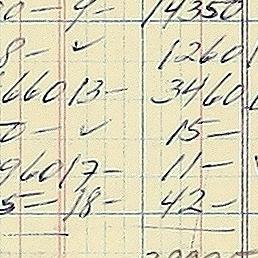 0— 9— 14350
8— ✓ 1260
66013— 3460
0— ✓ 15—
96017— 11—
5— 18— 42—